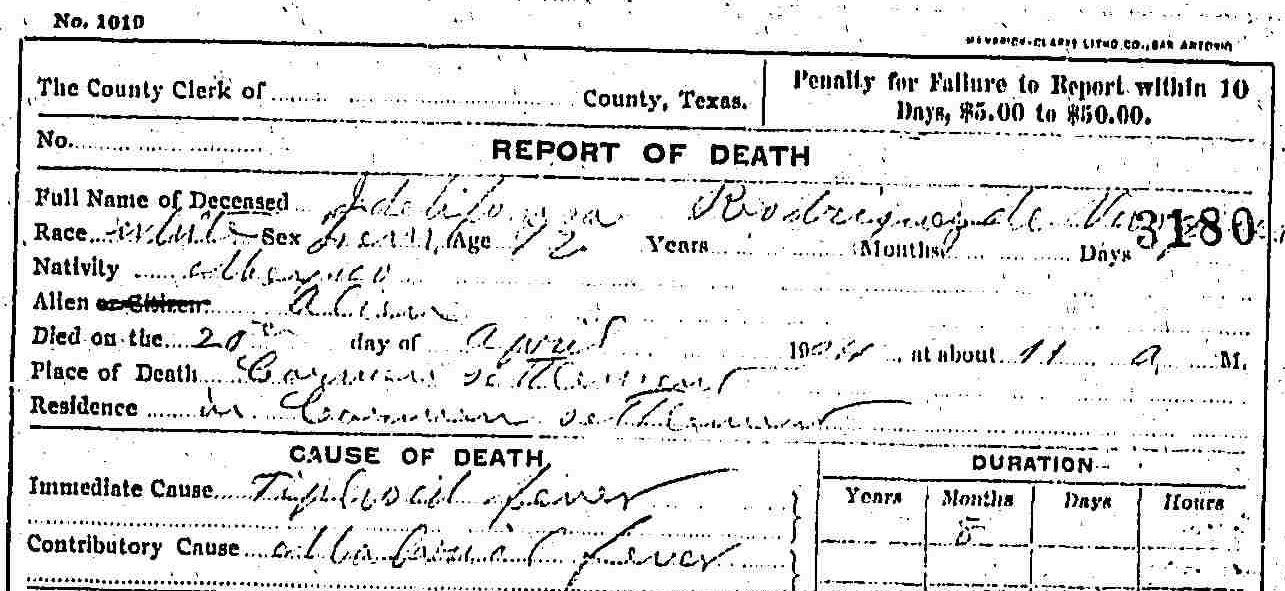 No. 1010
MAVERICK-CLARKE LITHO CO., SAN ANTONIO
The County Clerk of County, Texas.
Penalty for Failure to Report within 10
Days, $5.00 to $50.00.
No.
REPORT OF DEATH
Full Name of Deceased Rodriguez de
3180
Race white Sex Age 72 Years Months Days
Nativity Mexico
Alien or Citizen Alien
Died on the 20th day of April 190 , at about 11 a M.
Place of Death settlement
Residence in settlement
CAUSE OF DEATH
DURATION
Immediate Cause Tiphoid fever
Years Months Days Hours
5
Contributory Cause Malarial fever